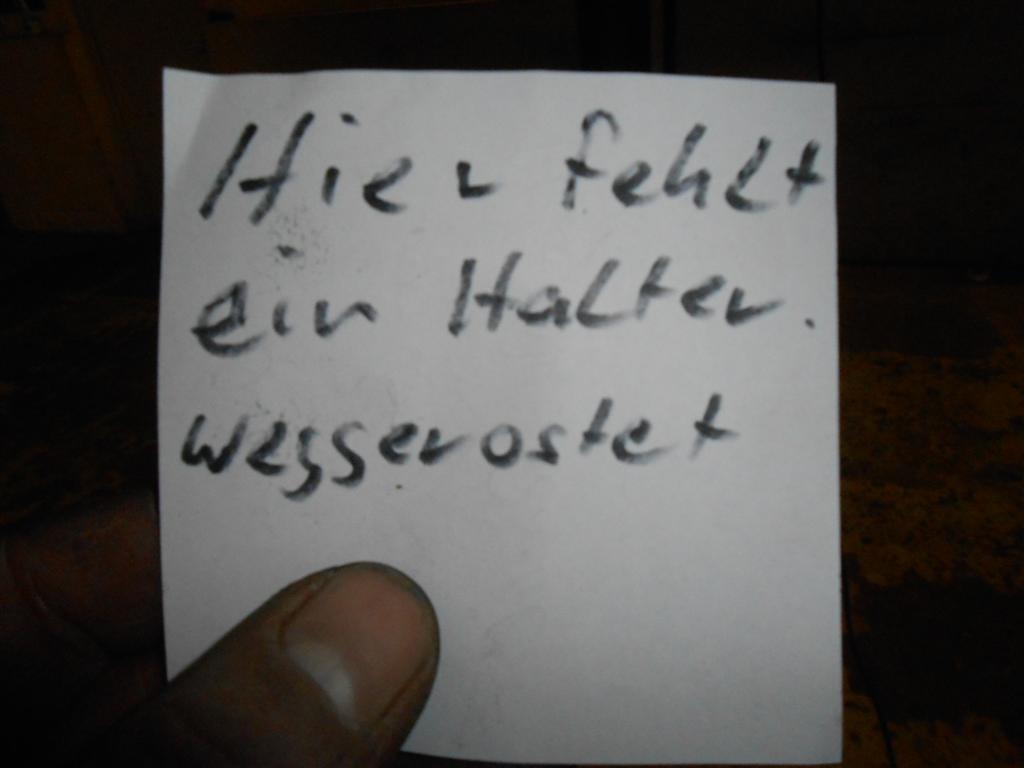 Hier fehlt
ein Halter.
weggerostet